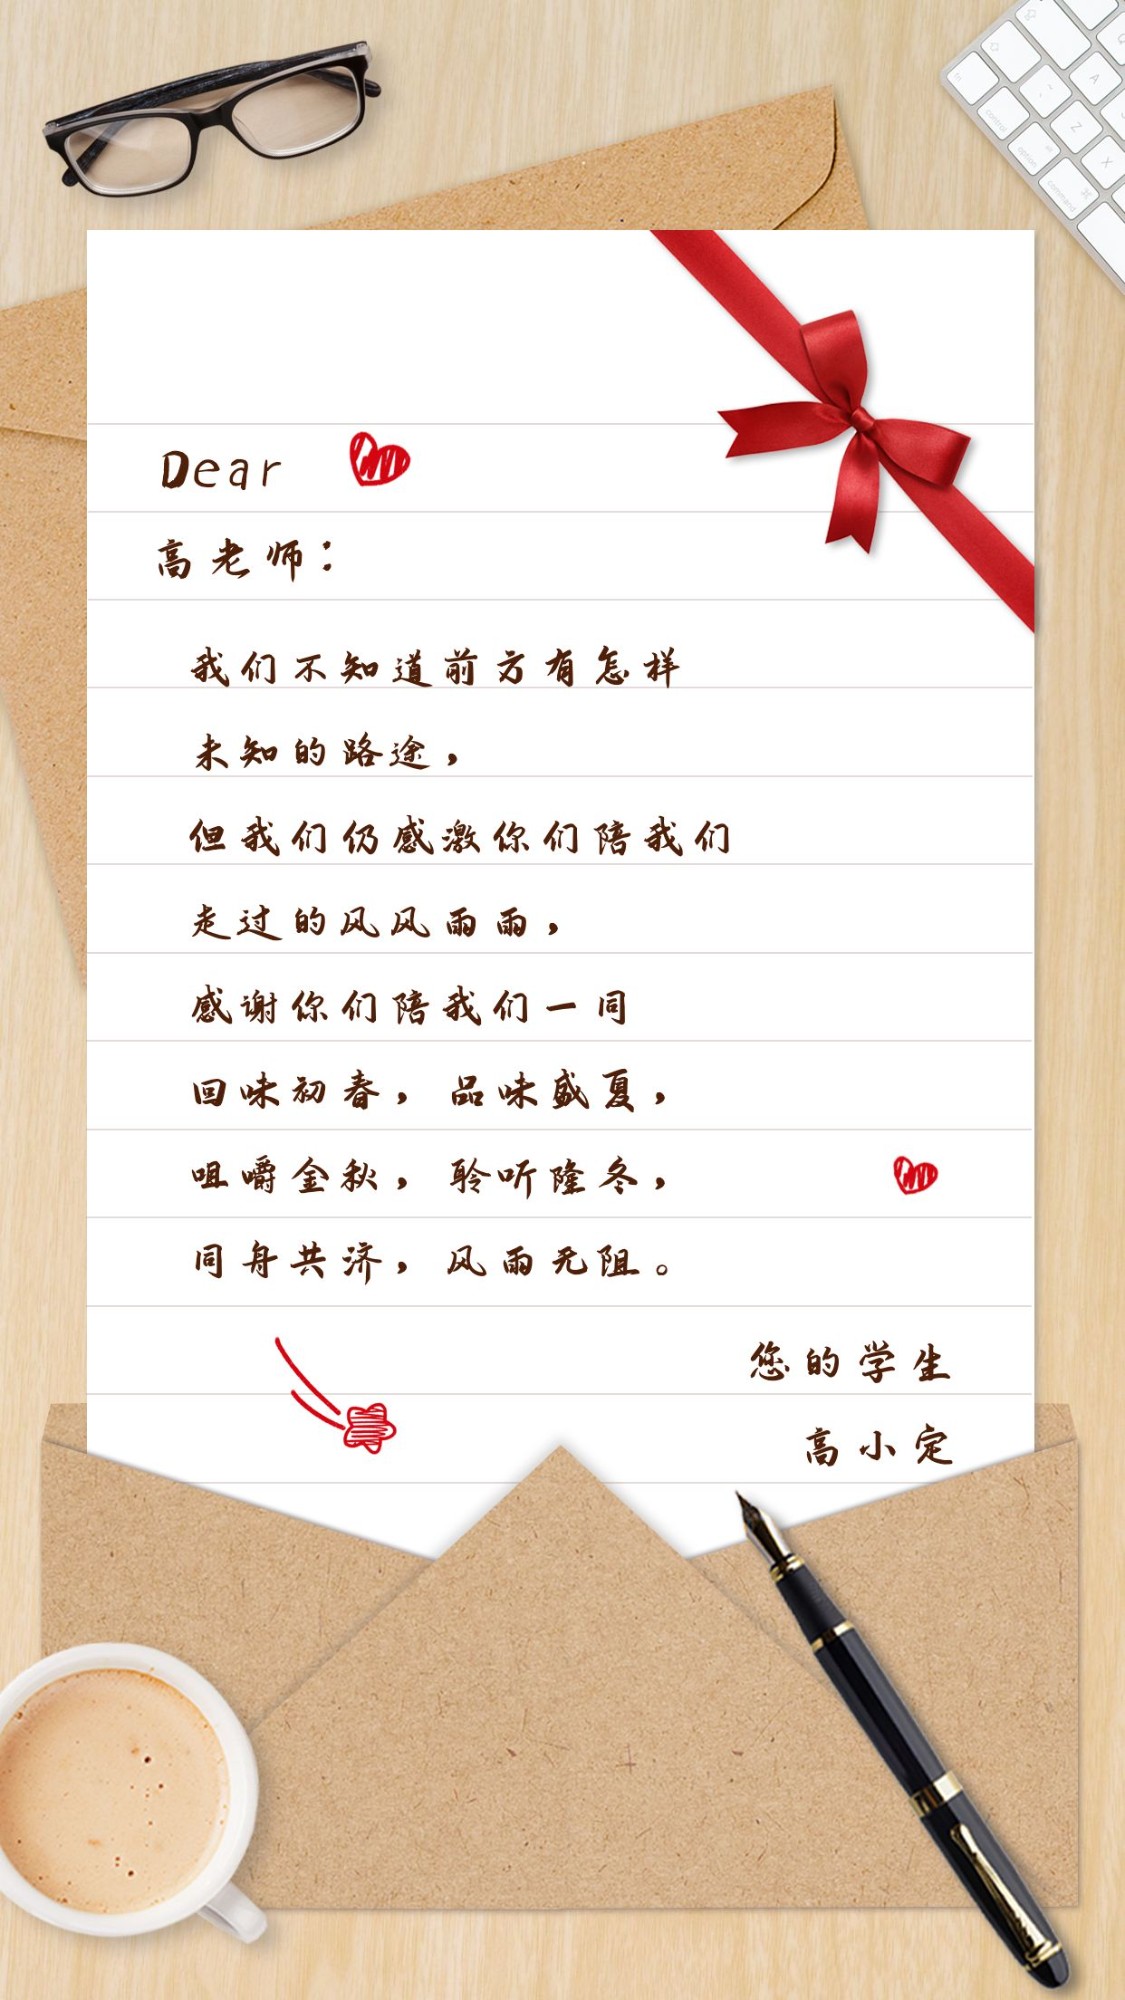 Dear
高老师：
我们不知道前方有怎样
未知的路途，
但我们仍感激你们陪我们
走过的风风雨雨，
感谢你们陪我们一同
回味初春，品味盛夏，
咀嚼金秋，聆听隆冬，
同舟共济，风雨无阻。
您的学生
高小定